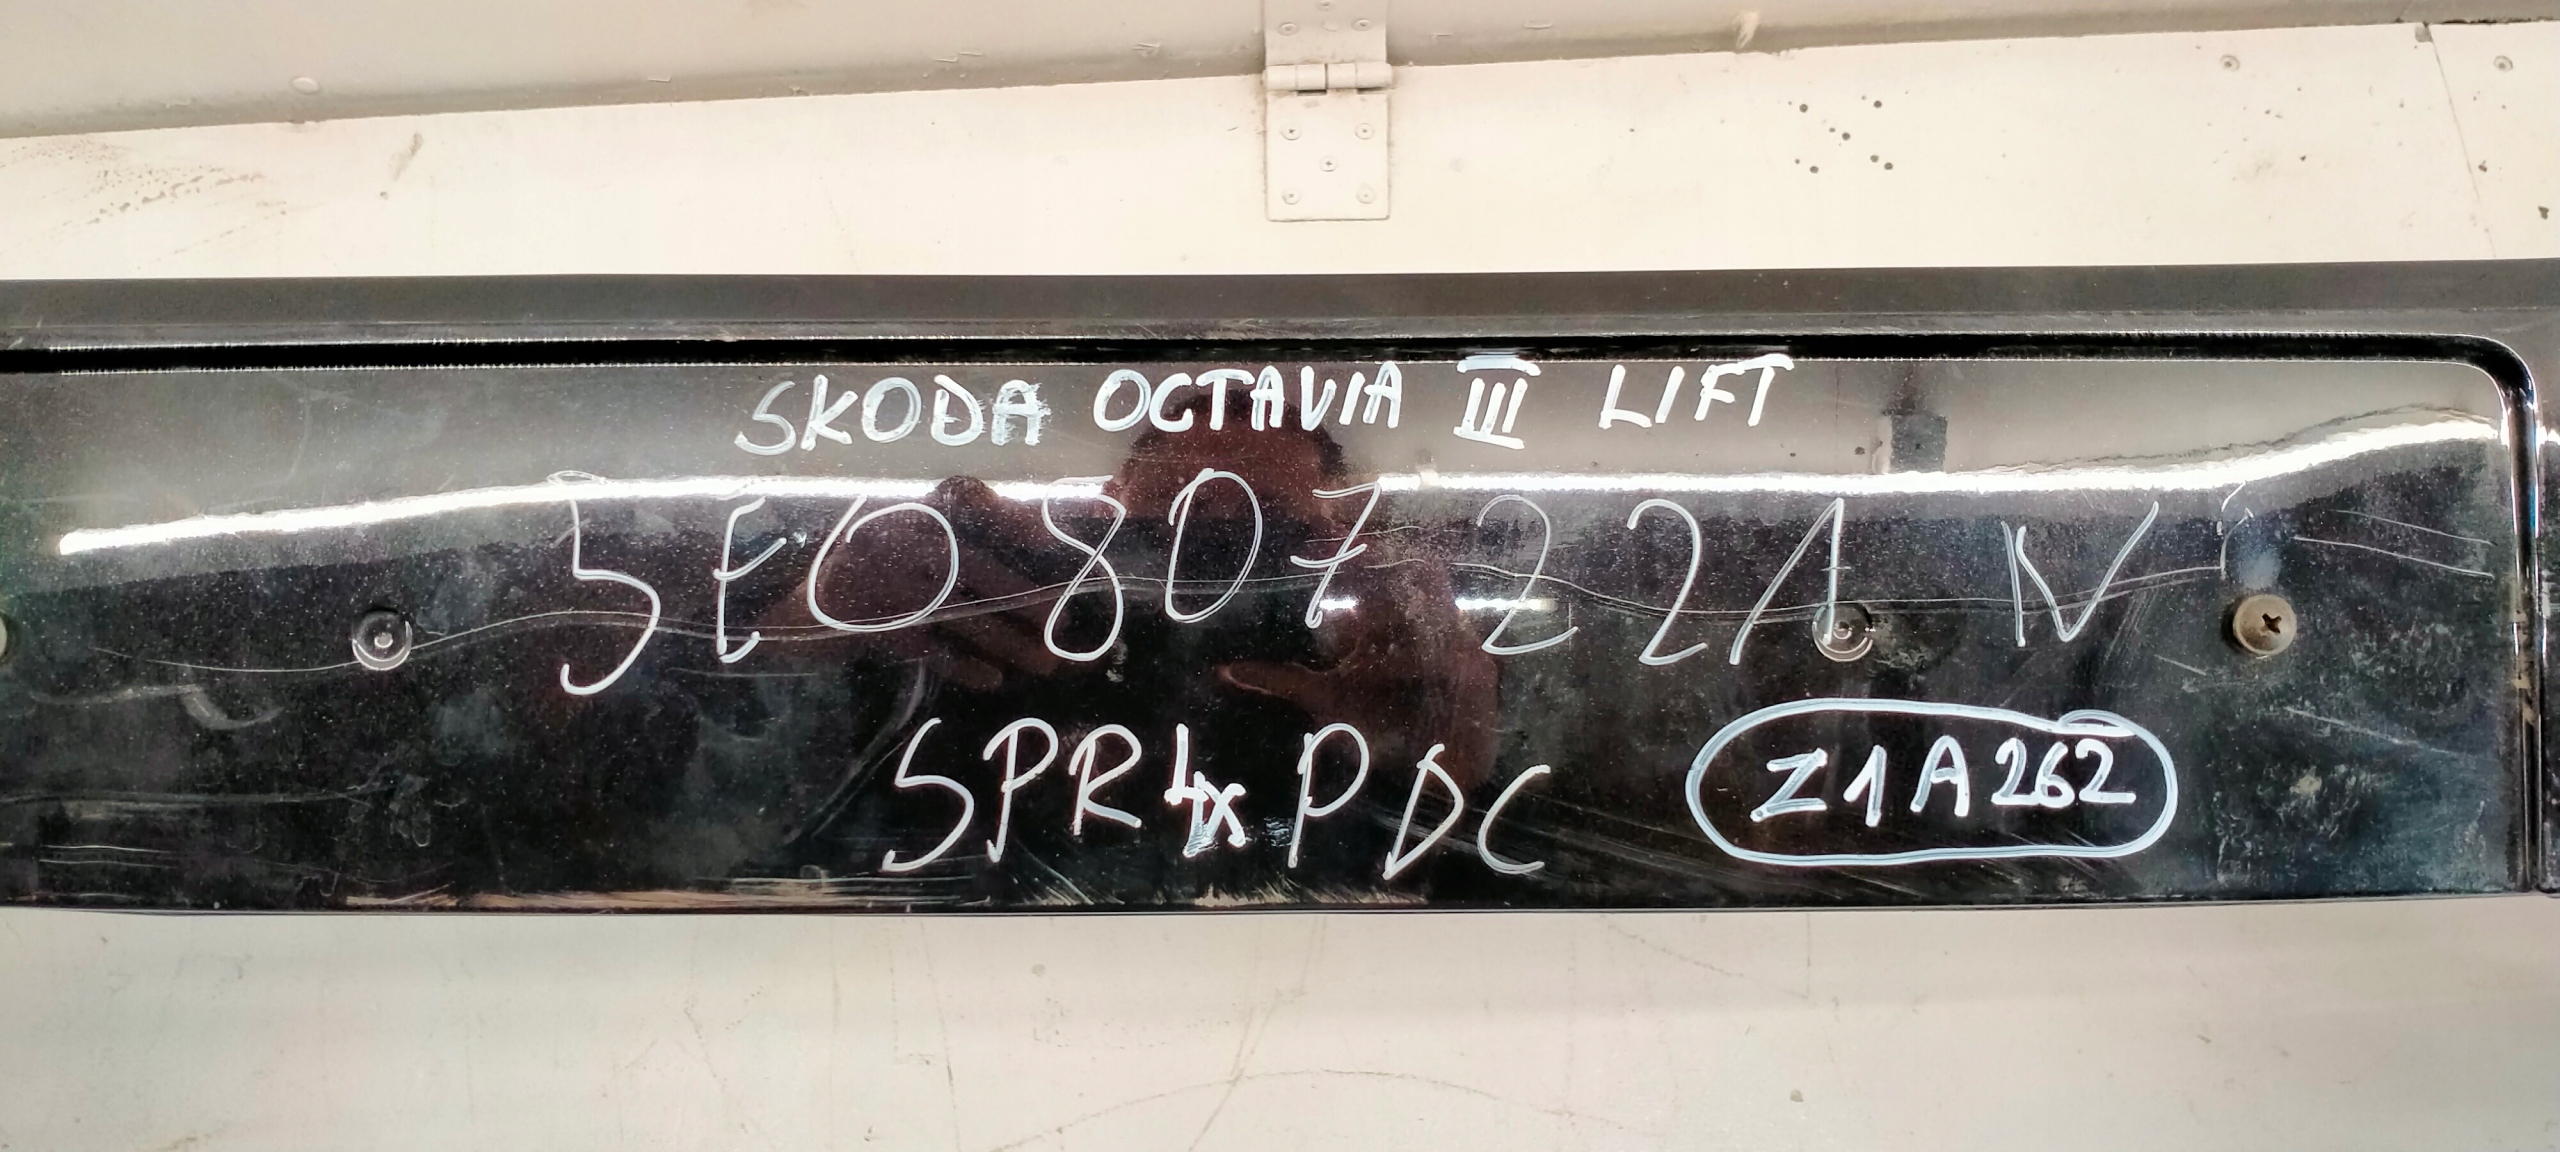 SKODA OCTAVIA III LIFT
5E0 807 221 N
SPR 4x PDC
Z1A262